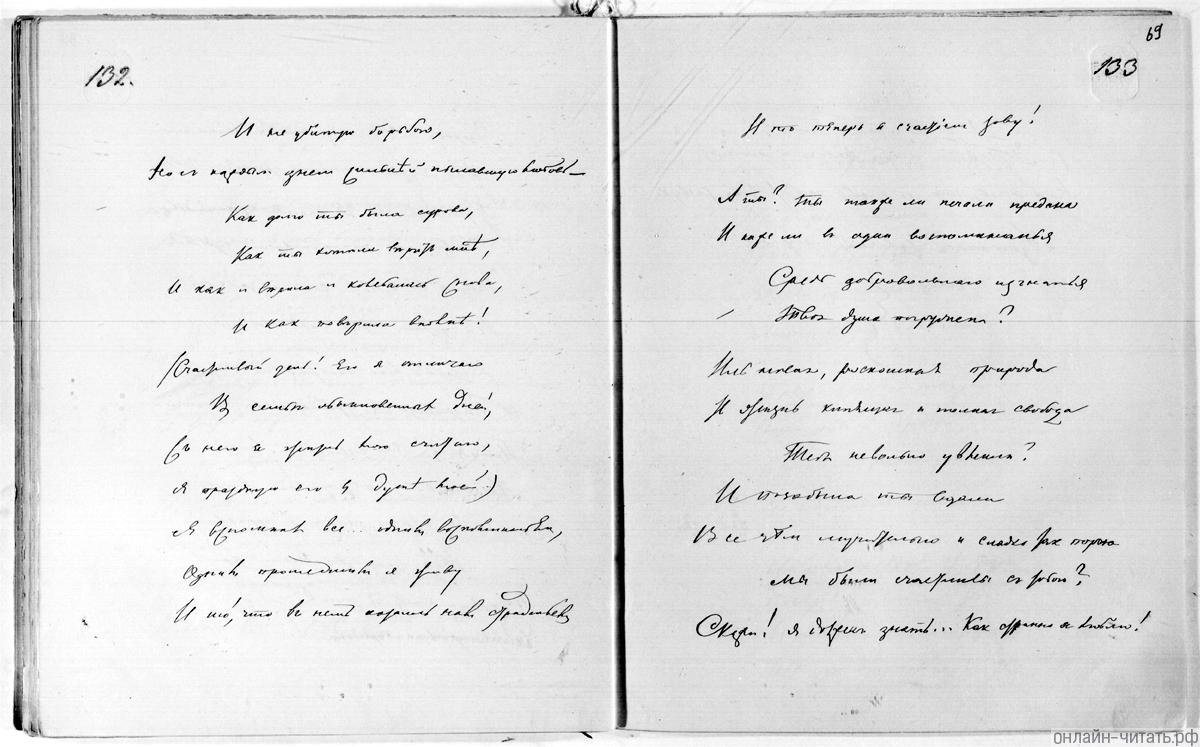 132.
И не убитую борьбою,
Но с каждым днем сильнѣй пылавшую любовь —
Как долго ты была сурова,
Как ты хотела вѣрить мнѣ,
И как и вѣрила и колебалась снова,
И как повѣрила вполнѣ!
(Счастливый день! Его я отличаю
В семьѣ обыкновенных дней,
Съ него я жизнь мою считаю,
Я праздную его в душѣ моей!)
Я вспомнил все... одним воспоминаньем,
Одним прошедшим я живу
И то, что в нем казалось нам страданьем
69
133
И то теперь я счастьем зову!
А ты? ты также ли печали предана
И также ли в одни воспоминанья
Средь добровольнаго изгнанья
Твоя душа погружена?
Иль новая, роскошная природа
И жизнь кипящая и полная свобода
Тебя невольно увлекли?
И позабыла ты вдали
Все чѣм мучительно и сладко так порою
Мы были счастливы с тобой?
Скажи! я должен знать... Как странно я люблю!
онлайн-читать.рф